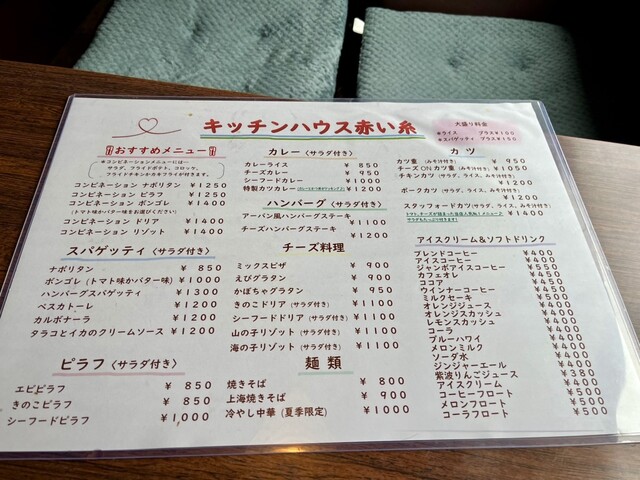 キッチンハウス赤い糸
大盛り料金
※ライス プラス¥100
※スパゲッティ プラス¥150
おすすめメニュー
※コンビネーションメニューには…
サラダ、フライドポテト、コロッケ、
フライドチキンかカキフライが付きます。
コンビネーション ナポリタン ¥1250
コンビネーション ピラフ ¥1250
コンビネーション ボンゴレ ¥1400
(トマト味かバター味をお選びください)
コンビネーション ドリア ¥1400
コンビネーション リゾット ¥1400
スパゲッティ〈サラダ付き〉
ナポリタン ¥850
ボンゴレ(トマト味かバター味) ¥1000
ハンバーグスパゲッティ ¥1300
ペスカトーレ ¥1200
カルボナーラ ¥1200
タラコとイカのクリームソース ¥1200
ピラフ〈サラダ付き〉
エビピラフ ¥850
きのこピラフ ¥850
シーフードピラフ ¥1,000
カレー〈サラダ付き〉
カレーライス ¥850
チーズカレー ¥950
シーフードカレー ¥1000
特製カツカレー ¥1200
ハンバーグ〈サラダ付き〉
アーバン風ハンバーグステーキ
¥1100
チーズハンバーグステーキ
¥1200
チーズ料理
ミックスピザ ¥900
えびグラタン ¥950
かぼちゃグラタン ¥950
きのこドリア(サラダ付き) ¥1100
シーフードドリア(サラダ付き) ¥1100
山の子リゾット(サラダ付き) ¥1100
海の子リゾット(サラダ付き) ¥1100
麺類
焼きそば ¥800
上海焼きそば ¥900
冷やし中華(夏季限定) ¥1000
カツ
カツ重(みそ汁付き) ¥950
チーズON カツ重(みそ汁付き) ¥1050
チキンカツ(サラダ、ライス、みそ汁付き)
¥1200
ポークカツ(サラダ、ライス、みそ汁付き)
¥1200
スタッフォードカツ(サラダ、ライス、みそ汁付き)
¥1400
アイスクリーム&ソフトドリンク
ブレンドコーヒー ¥400
アイスコーヒー ¥400
ジャンボアイスコーヒー ¥550
カフェオレ ¥450
ココア ¥450
ウインナーコーヒー ¥450
ミルクセーキ ¥500
オレンジジュース ¥400
オレンジスカッシュ ¥400
レモンスカッシュ ¥400
コーラ ¥400
ブルーハワイ ¥400
メロンミルク ¥400
ソーダ水 ¥400
ジンジャーエール ¥400
紫波りんごジュース ¥380
アイスクリーム ¥400
コーヒーフロート ¥500
メロンフロート ¥500
コーラフロート ¥500